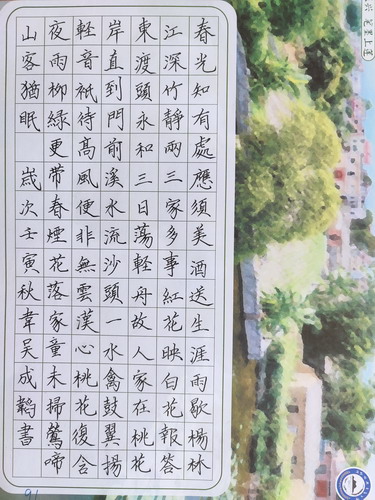 春光知有處應須美酒送生涯雨歇楊林
江深竹靜兩三家多事紅花映白花報答
東渡頭永和三日蕩輕舟故人家在桃花
岸直到門前溪水流沙頭一水禽鼓翼揚
輕音衹待高風便非無雲漢心桃花復含
夜雨柳綠更帶春煙花落家童未掃鶯啼
山客猶眠 歲次壬寅秋韋吳成韜書
91